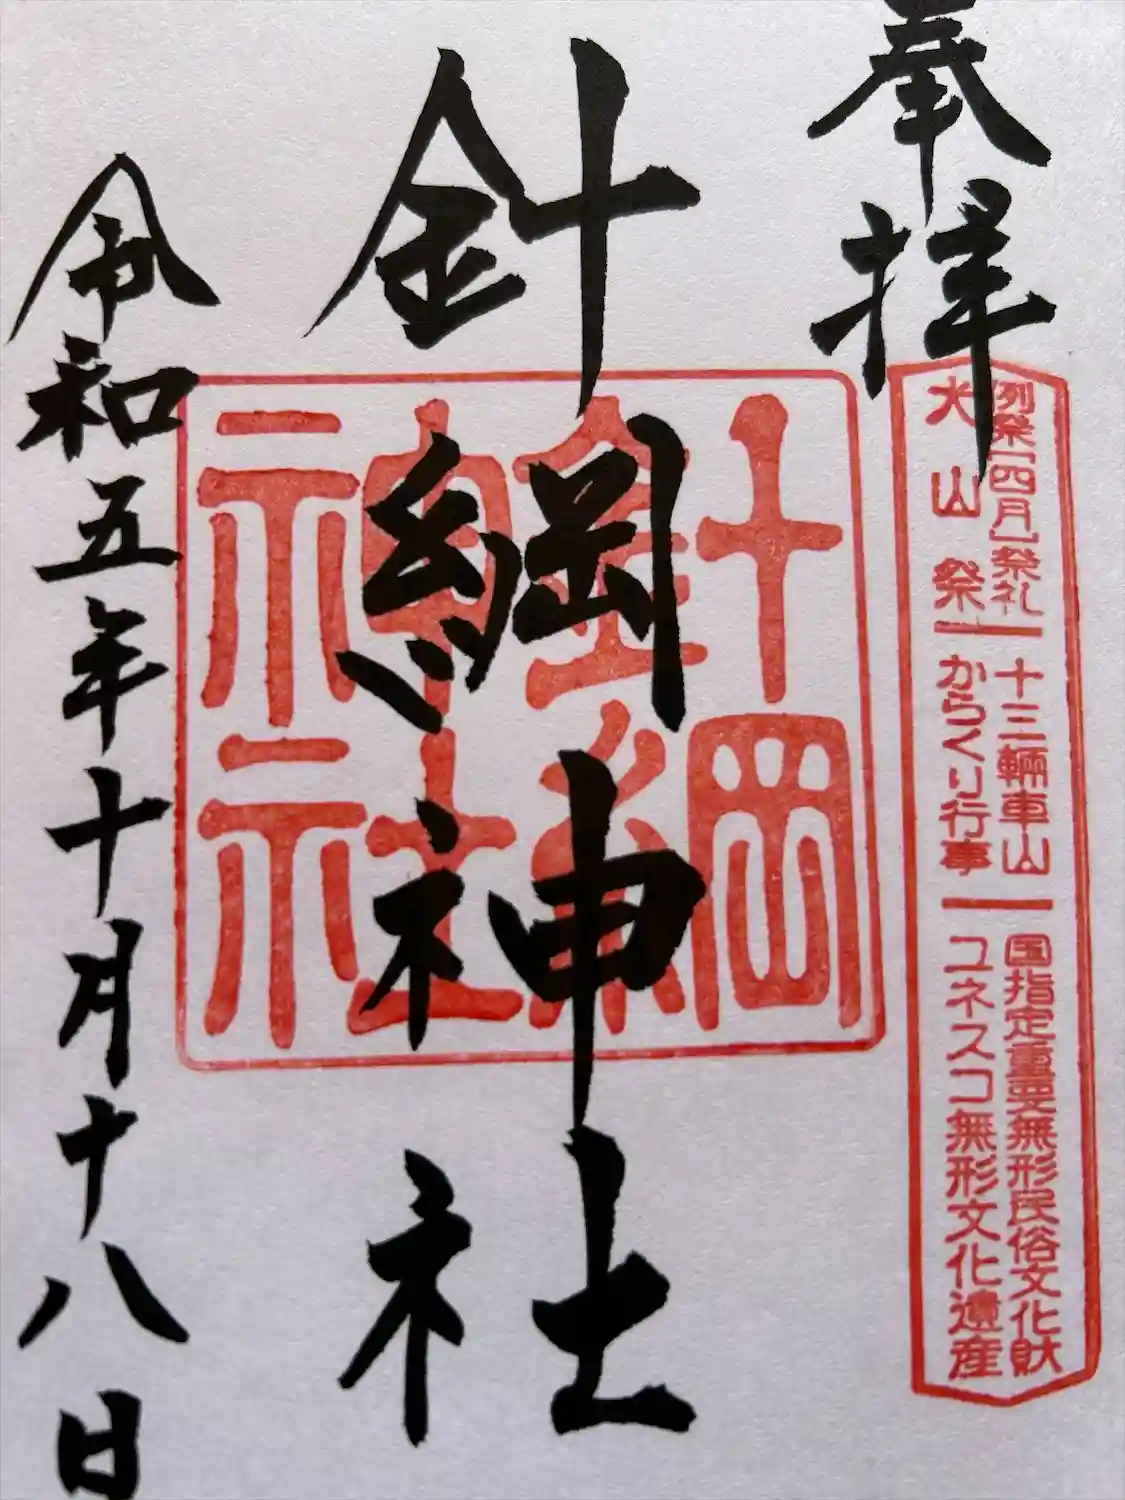 奉拝
例祭[四月]祭礼 十三輛車山 国指定重要無形民俗文化財
犬山祭 からくり行事 ユネスコ無形文化遺産
針綱神社
針綱神社
令和五年十月十八日